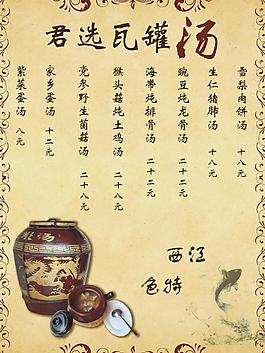 君选瓦罐汤
雪梨肉饼汤 十八元
生仁猪肺汤 十八元
豌豆炖龙骨汤 二十二元
海带炖排骨汤 二十二元
猴头菇炖土鸡汤 二十八元
党参野生菌菇汤 二十八元
家乡蛋汤 十二元
紫菜蛋汤 八元
江西
特色